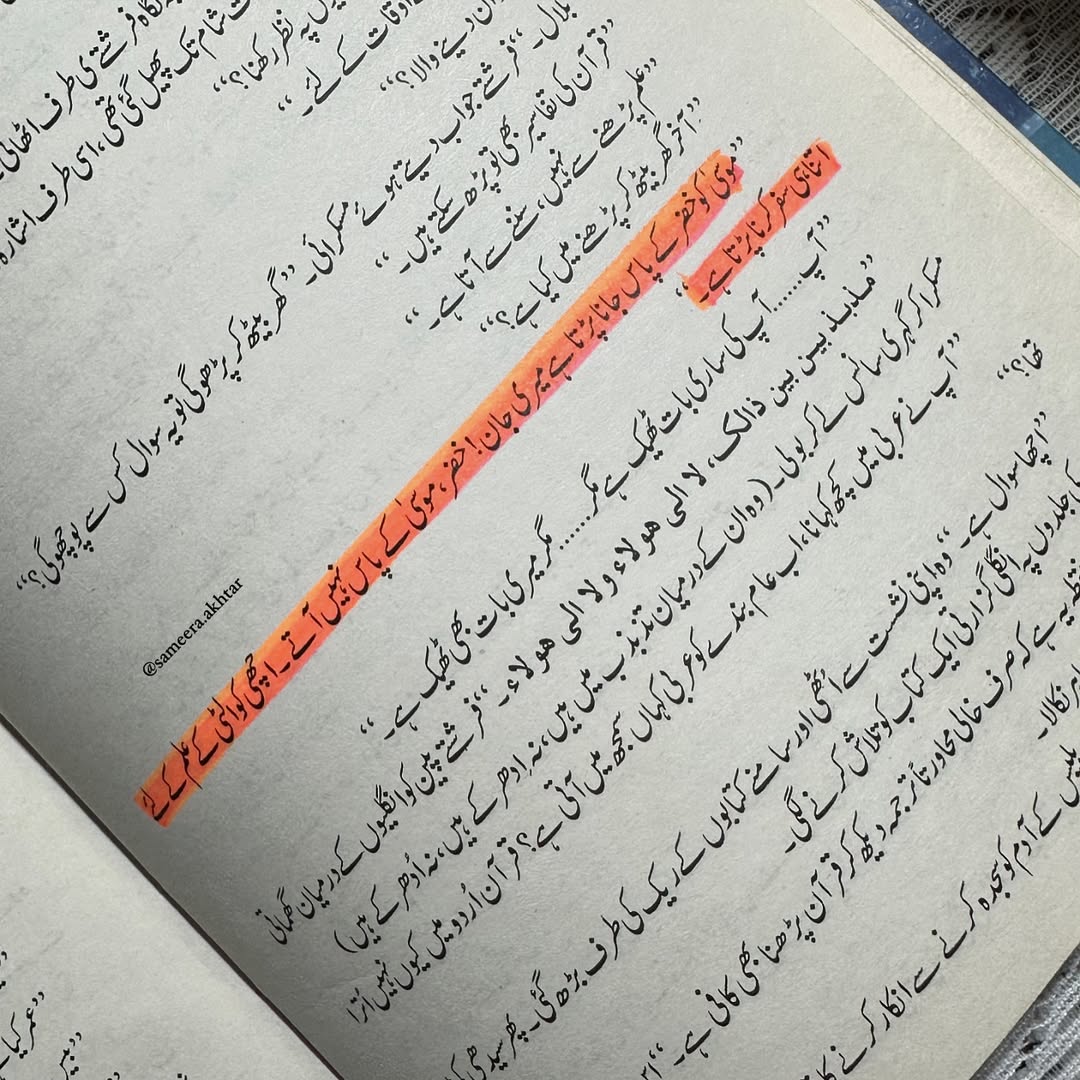 نگاہ فرشتے کی طرف اٹھائی
شام تک پھیل گئی تھی، اسی طرف اشارہ
پہ نظر رکھنا؟“
اوقات کے لئے۔“
دینے والا؟“
بلال۔“ فرشتے جواب دیتے ہوئے مسکرائی۔ ”گھر بیٹھ کر پڑھو گی تو یہ سوال کس سے پوچھو گی؟“
”قرآن کی تفاسیر بھی تو پڑھ سکتے ہیں۔“
”علم پڑھنے سے نہیں، سننے سے آتا ہے۔“
”آخر گھر بیٹھ کر پڑھنے میں کیا ہے؟“
”موسیٰ کو خضر کے پاس جانا پڑتا ہے میری جان! خضر، موسیٰ کے پاس نہیں آتے۔ اچھی کوالٹی کے علم کے لئے
اتنا ہی سفر کرنا پڑتا ہے۔“
”آپ...... آپ کی ساری بات ٹھیک ہے مگر...... مگر میری بات بھی ٹھیک ہے۔“
”مذبذبین بین ذالک، لا الی ھولاء ولا الی ھولاء۔“ فرشتے پین کو انگلیوں کے درمیان گھماتی
مسکرا کر گہری سانس لے کر بولی۔ (وہ ان کے درمیان تذبذب میں ہیں، نہ اِدھر کے ہیں، نہ اُدھر کے ہیں)
”آپ نے عربی میں کچھ کہا نا، اب عام بندے کو عربی کہاں سمجھ میں آتی ہے؟ قرآن اُردو میں کیوں نہیں اُترا
تھا؟“
”اچھا سوال ہے۔“ وہ اپنی نشست سے اُٹھی اور سامنے کتابوں کے ریک کی طرف بڑھ گئی۔ پھر سیدھی
کی جلدوں پہ انگلی گزارتی ایک کتاب کو تلاش کرنے لگی۔
نقطہ یہ ہے کہ صرف خالی محاورتاً ترجمہ دیکھ کر قرآن پڑھنا بھی کافی ہے۔“
نکالا۔
ابلیس کے آدم کو سجدہ کرنے سے انکار کرنے
@sameera.akhtar
”عمر